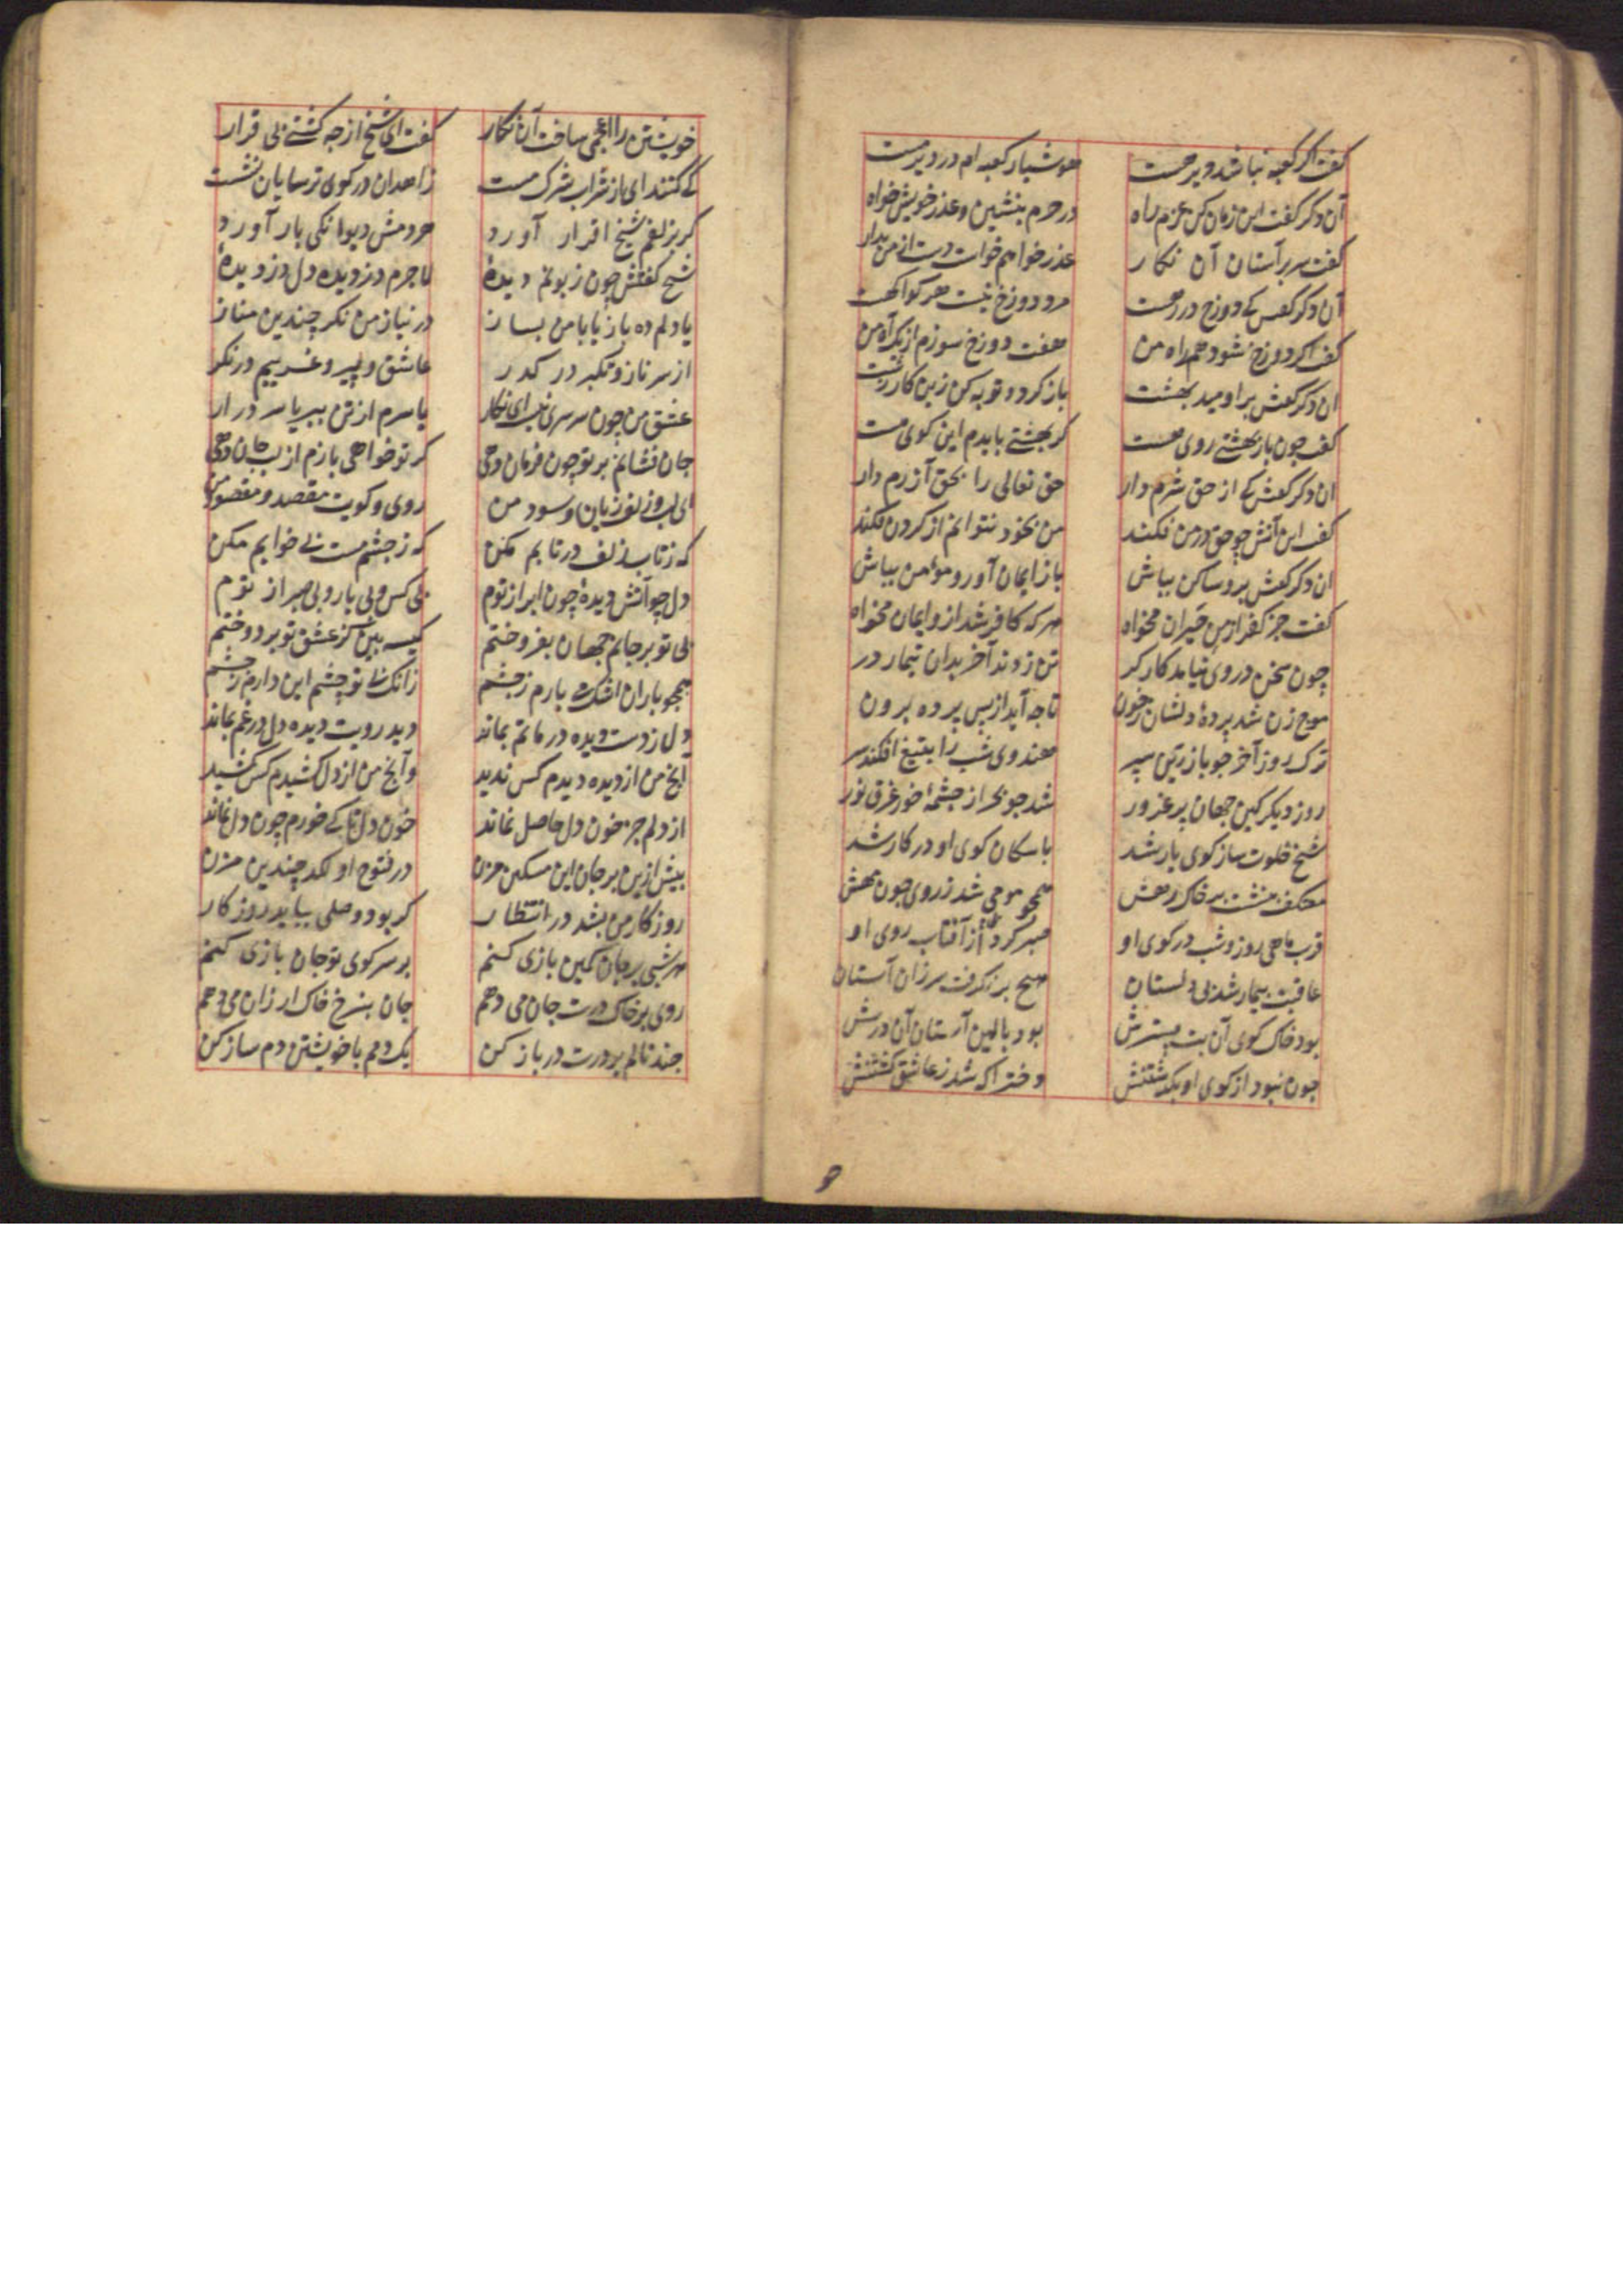 گفت اگر کعبه نباشد دیر هست هوشیار کعبه ام در دیر مست
آن دکر گفت این زمان کن عزم راه در حرم بنشین و عذر خویش خواه
گفت سر بر آستان آن نکار عذر خواهم خواست دست از من بدار
آن دکر گفتش که دوزخ در رهست مرد دوزخ نیست هر کو آکهست
گفت اکر دوزخ شود همراه من هفت دوزخ سوزم از یک آه من
ان دکر گفتش بر اومید بهشت باز کرد و توبه کن زین کار زشت
گفت چون یار بهشتی روی هست کر بهشتی بایدم این کوی هست
ان دکر گفتش که از حق شرم دار حق تعالی را بحق آزرم دار
گفت این آتش چو حق در من فکند من بخود نتوانم از کردن فکند
ان دکر گفتش برو ساکن بباش باز ایمان آور و مؤمن بباش
گفت جز کفر از من حیران مخواه هر که کافر شد ازو ایمان مخواه
چون سخن در وی نیامد کارکر تن زدند آخر بدان تیمار در
موج زن شد پردهٔ دلشان ز خون تا چه آید از پس پرده برون
ترک روز آخر چو با زرین سپر هندوی شب را بتیغ افکند سر
روز دیکر کین جهان پر غرور شد چو بحر از چشمهٔ خور غرق نور
شیخ خلوت ساز کوی یار شد با سکان کوی او در کار شد
معتکف بنشست بر خاک رهش همچو مویی شد ز روی چون مهش
قرب ماهی روز و شب در کوی او صبر کرد از آفتاب روی او
عاقبت بیمار شد بی دلستان هیچ بر نکرفت سر زان آستان
بود خاک کوی آن بت بسترش بود بالین آستان آن درش
چون نبود از کوی او بکذشتنش دختر اکه شد ز عاشق کشتنش
خویشتن را اعجمی ساخت آن نکار گفت ای شیخ از چه کشتی بی قرار
کی کنند ای از شراب شرک مست زاهدان در کوی ترسایان نشست
کر بزلفم شیخ اقرار آورد هر دمش دیوانکی بار آورد
شیخ گفتش چون زبونم دیدهٔ لاجرم دزدیده دل دزدیدهٔ
یا دلم ده باز یا با من بساز در نیاز من نکر چندین مناز
از سر ناز و تکبر در کذر عاشق و پیر و غریبم در نکر
عشق من چون سرسری نیست ای نکار یا سرم از تن ببر یا سر در ار
جان فشانم بر تو چون فرمان دهی کر تو خواهی بازم از لب جان دهی
ای لب و زلفت زیان و سود من روی و کویت مقصد و مقصود من
که ز تاب زلف در تابم مکن که ز چشم مست بی خوابم مکن
دل چو آتش دیدهٔ چون ابر از توم بی کس و بی یار و بی صبر از توم
بی تو بر جانم جهان بفروختم کیسه بین کز عشق تو بر دوختم
همچو باران اشک می بارم ز چشم زانک بی تو چشم این دارم ز چشم
دل ز دست دیده در ماتم بماند دید رویت دیده دل در غم بماند
آنچ من از دیده دیدم کس ندید وآنچ من از دل کشیدم کس کشید
از دلم جز خون دل حاصل نماند خون دل تا کی خورم چون دل نماند
بیش ازین بر جان این مسکین مزن در فتوح او لکد چندین مزن
روزکار من بشد در انتظار کر بود وصلی بیاید روزکار
هر شبی بر جان کمین بازی کنم بر سر کوی تو جان بازی کنم
روی بر خاک درت جان می دهم جان بنرخ خاک ارزان می دهم
چند نالم بر درت در باز کن یک دمم با خویشتن دمساز کن